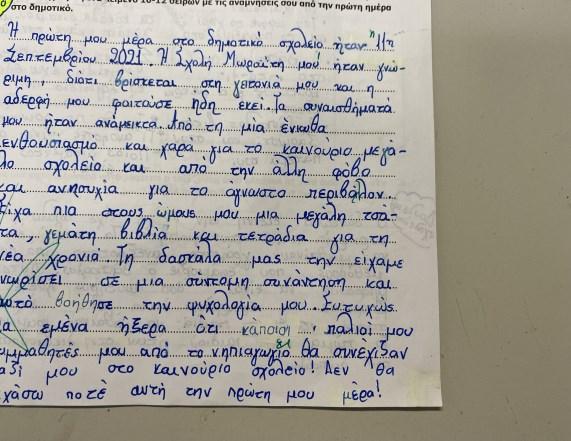 κείμενο 10-12 σειρών με τις αναμνήσεις σου από την πρώτη ημέρα
στο δημοτικό.
Η πρώτη μου μέρα στο δημοτικό σχολείο ήταν 11η
Σεπτεμβρίου 2021. Η Σχολή Μωραΐτη μου ήταν γνώ-
ριμη, διότι βρίσκεται στη γειτονιά μου και η
αδερφή μου φοιτούσε ήδη εκεί. Τα συναισθήματά
μου ήταν ανάμεικτα. Από τη μία ένιωθα
ενθουσιασμό και χαρά για το καινούριο μεγά-
λο σχολείο και από την άλλη φόβο
και ανησυχία για το άγνωστο περιβάλον.
Είχα πια στους ώμους μου μια μεγάλη τσά-
τα, γεμάτη βιβλία και τετράδια για τη
νέα χρονιά. Τη δασκάλα μας την είχαμε
νωρίσει σε μια σύντομη συνάντηση και
αυτό βοήθησε την ψυχολογία μου. Ευτυχώς
α εμένα ήξερα ότι κάποιοι παλιοί μου
υμμαθητές μου από το νηπιαγωγιο θα συνέχιζαν
αζί μου στο καινούριο σχολείο! Δεν θα
χάσω ποτέ αυτή την πρώτη μου μέρα!